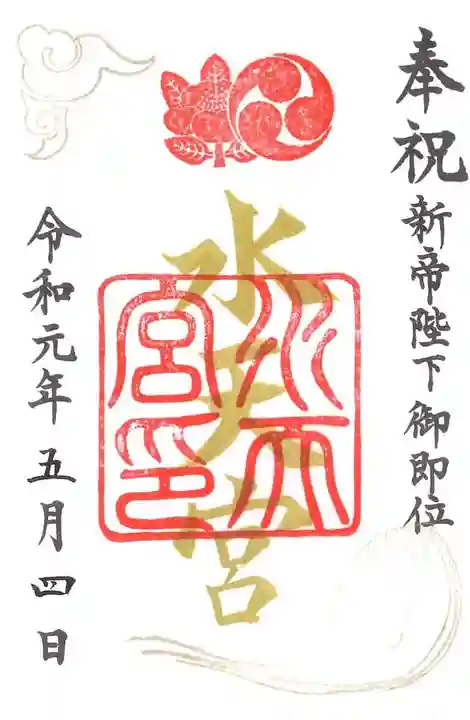 奉祝
新帝陛下御即位
水天宮
水天宮印
令和元年五月四日